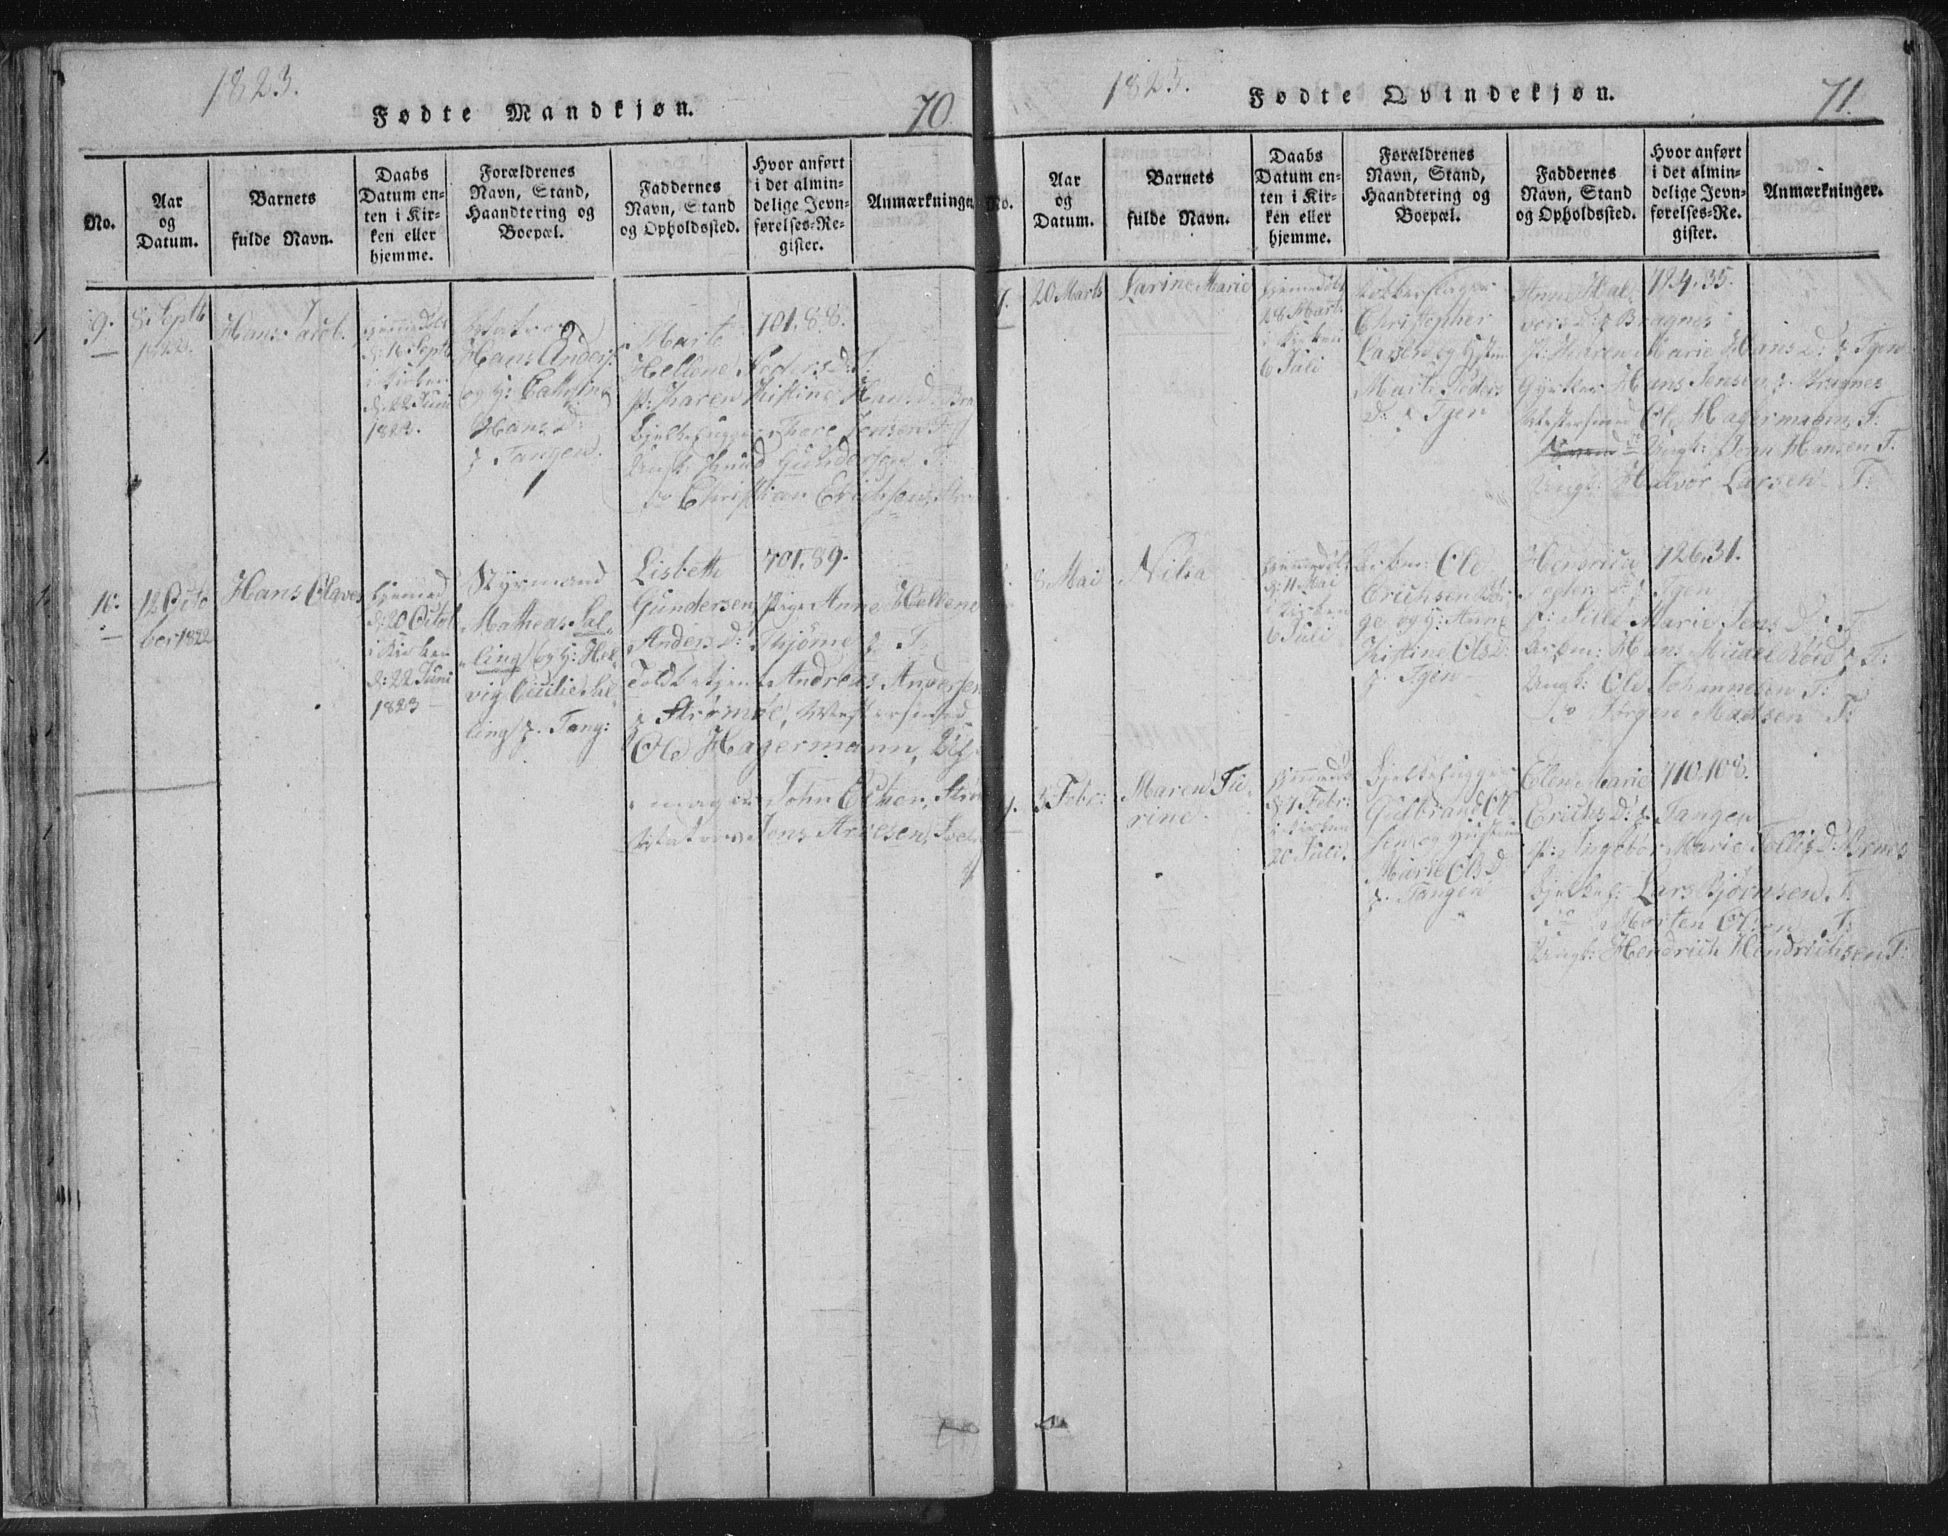 1823.
Fødte Mandkjøn.
70
No.
Aar
og
Datum.
Barnets
fulde Navn.
Daabs
Datum en-
ten i Kir-
ken eller
hjemme.
Forældrenes
Navn, Stand,
Haandtering og
Boepæl.
Faddernes
Navn, Stand
og Opholdssted.
Hvor anført
i det almin-
delige Jevn-
førelses-Re-
gister.
Anmærkninge
9.
8. Septb
1822.
Hans Jacob.
hjemmedøbt
d: 16 Septb
i Kirken
d. 22 Juni
1823.
Hans Anders.
og H: Cathrina
Hans D:
p. Tangen.
Marte
Hellene Peders D: T.
P: Karen Kistine Hans D: Bra
Thore Jensen T.
Ungk: Knud Gundersen T.
do Christian Erichsen
701. 88.
10.
12 Octo
ber 1822
Hans Olaves
hjemmed
d: 20 Octob
i Kirken
d: 22 Juni
1823
Styrmand
Matheas Sal-
ling og H: Hel-
vig Cecilie Sal-
ling p. Tang:
Lisbeth
Gundersen, Pige Anne Hellene
Anders D: Thjøme p T.
Toldbetjent Andreas Andersen
p Strømsøe,
Ole Hagermann,
mager John Olsen,
Jens Arvesen,
701. 89.
1823.
Fødte Qvindekjøn.
71.
No.
Aar
og
Datum.
Barnets
fulde Navn.
Daabs
Datum en-
ten i Kir-
ken eller
hjemme.
Forældrenes
Navn, Stand,
Haandtering og
Boepæl.
Faddernes
Navn, Stand
og Opholdssted.
Hvor anført
i det almin-
delige Jevn-
førelses-Re-
gister.
Anmærkninger.
7.
20 Marts
Larine Marie
hjemmedøbt
28 Marts
i Kirken
6 Juli
Christopher
Larsen og Hustru
Marte Peders
D. p Tgen
Anne Hal-
vors D: p Bragnes
P: Karen Marie Hans D: p Tgen
Hans Jensen p. Bragnes
Ole Hagermann T.
Ungk: Jenn Hansen T.
Ungk: Halvor Larsen T:
724. 35.
8. Mai
Nilea
hjemmedøbt
d: 11 Mai
i Kirken
6 Juli
Arbm: Ole
Erichsen
og H: Anne
Kistine Ols D:
p. Tgen
P: Sille Marie Jens D: T
Arbm: Hans p T:
Ungk: Ole Johannesen T:
do Jørgen Madsen T:
726. 31.
9.
3. Febr:
Maren Tu-
rine.
hjemmedøbt
d. 7 Febr:
i Kirken
20 Juli.
Bjelkehugger
Gulbrand Ol-
sen og Hustru
Marie Ols D
p. Tangen
Elen Marie
Erichs D: p. Tangen
P: Ingebor Marie
Bjelkeh: Lars Bjørnsen T.
do Morten Olsen T:
Ungk: Hendrich Hendrichsen T:
710. 108.